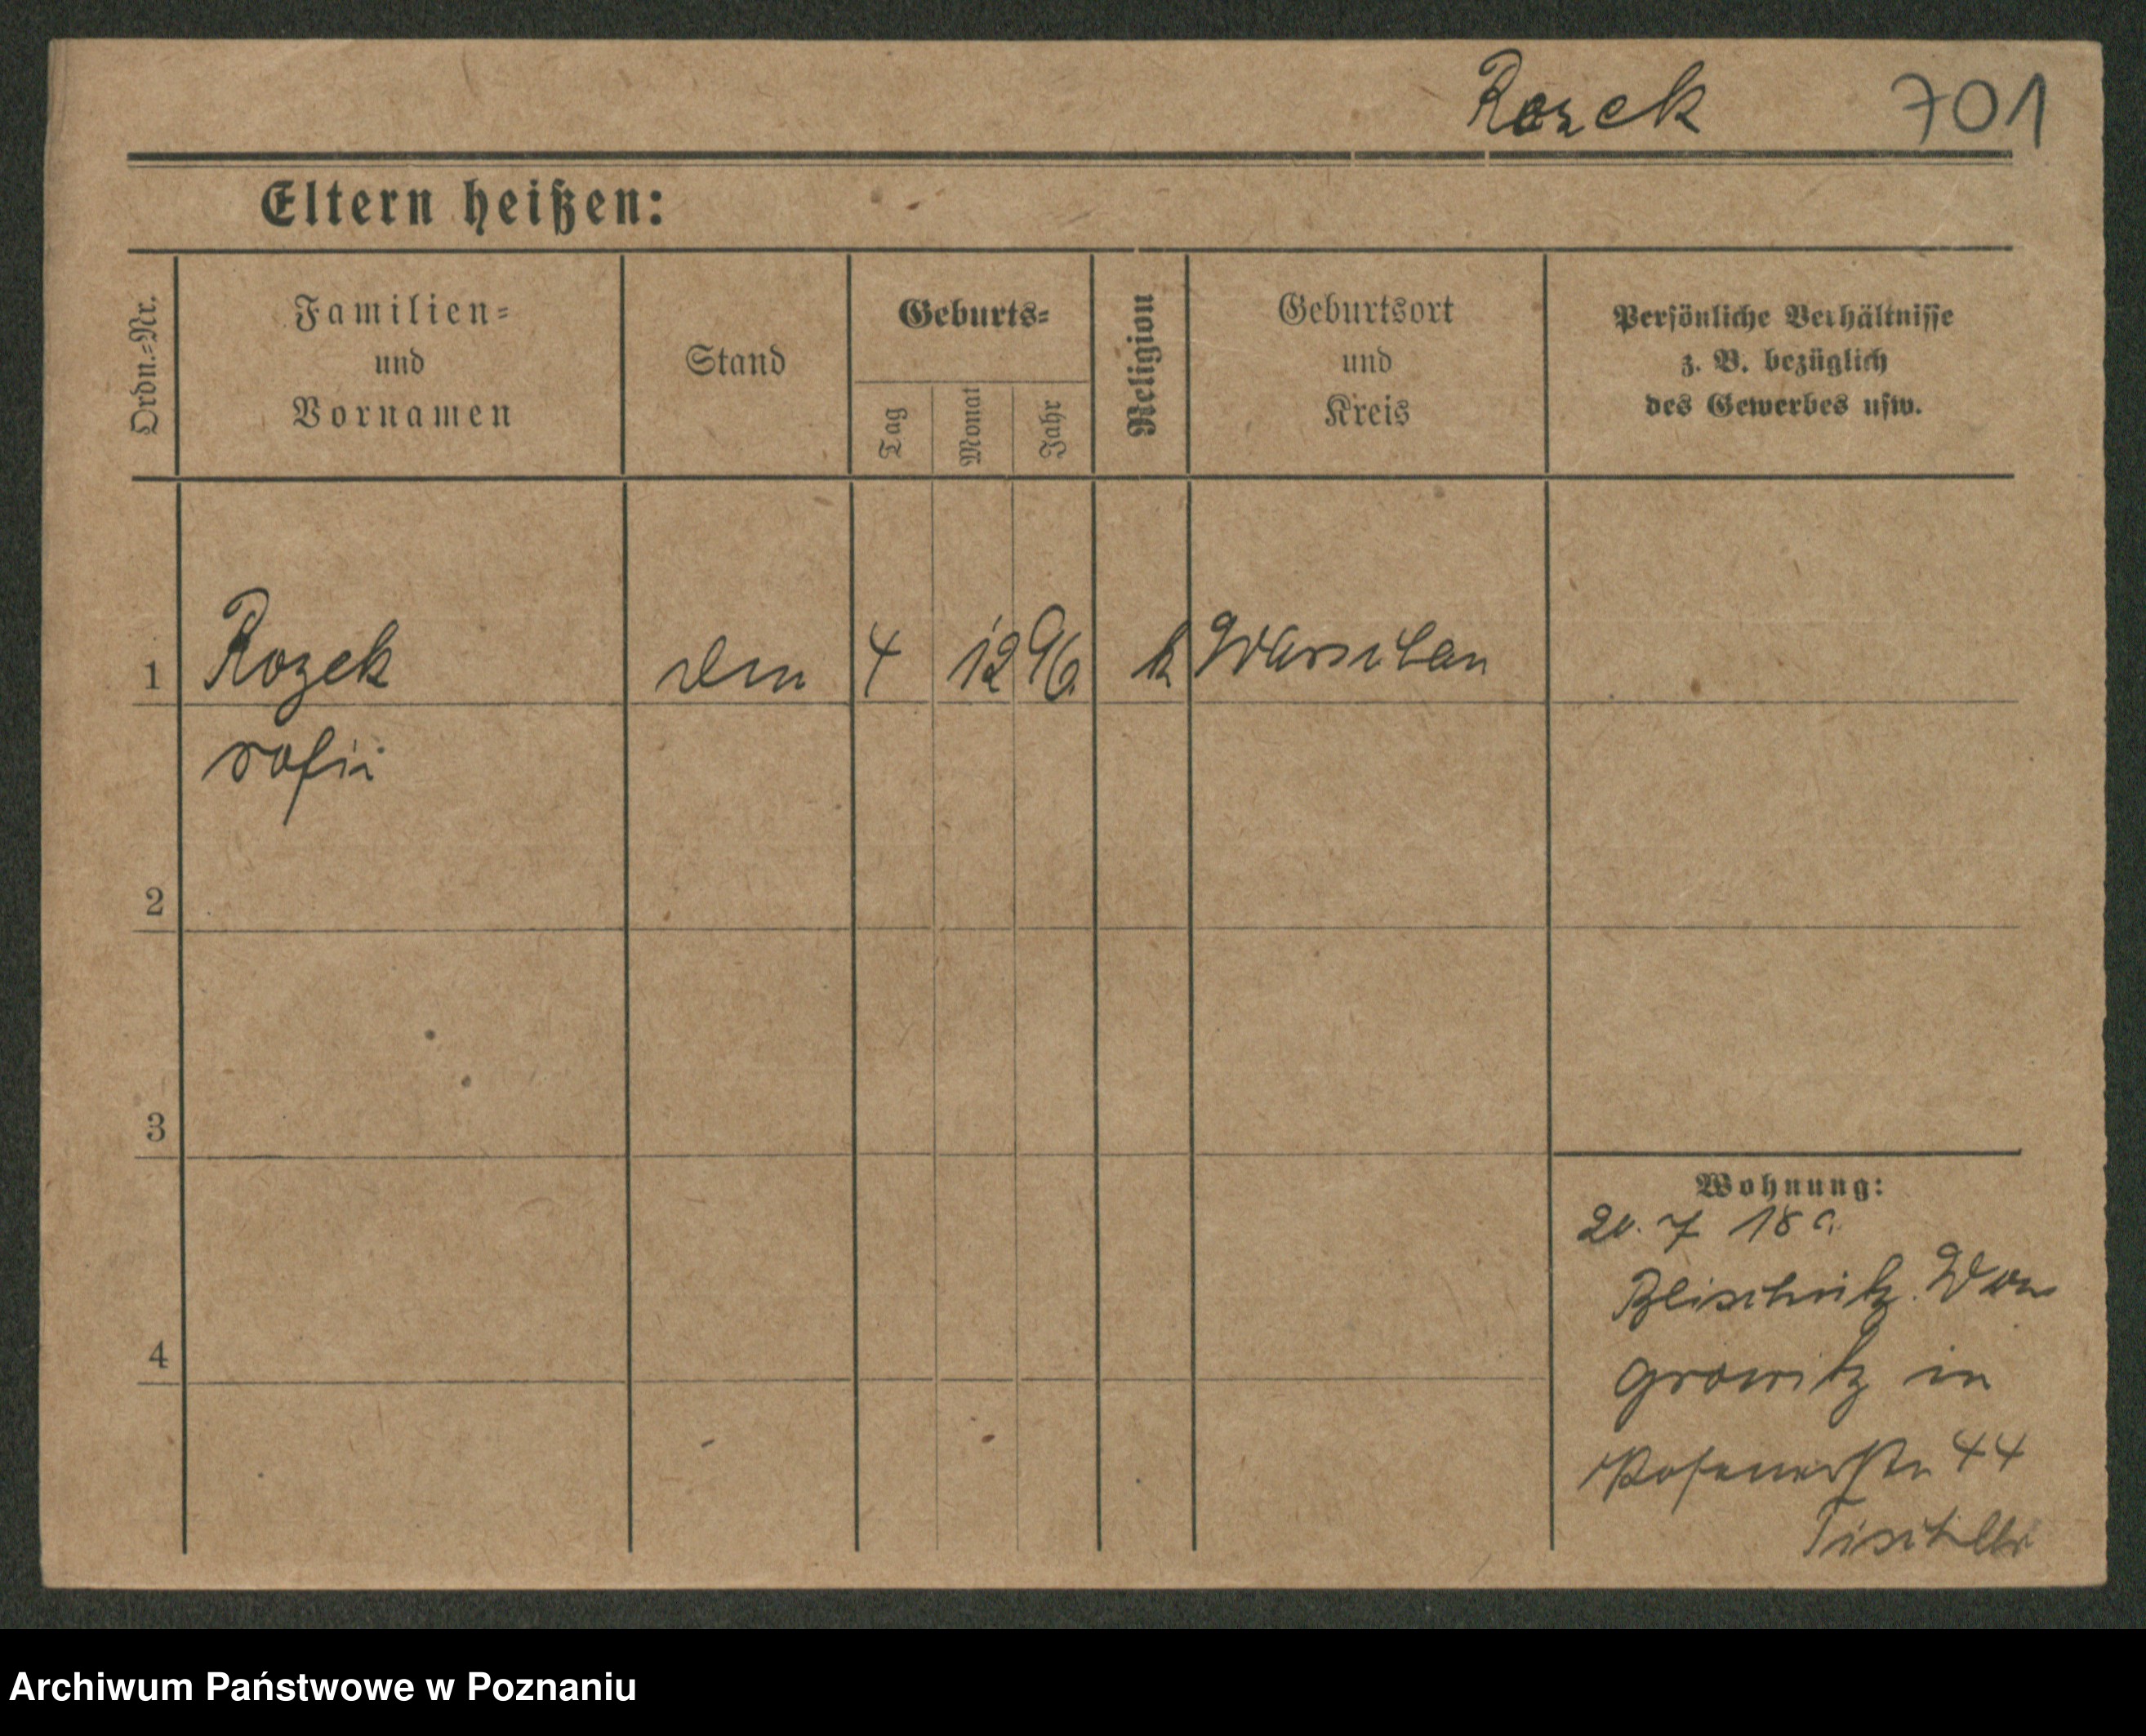 Rozek 701
Eltern heißen:
Ordn.-Nr.
Familien-
und
Vornamen
Stand
Geburts-
Tag
Monat
Jahr
Religion
Geburtsort
und
Kreis
Persönliche Verhältnisse
z. B. bezüglich
des Gewerbes usw.
1 Rozek 4 12 96 k Warschau
2
3
4
Wohnung:
20. 7 18
growitz in
Posenerstr 44